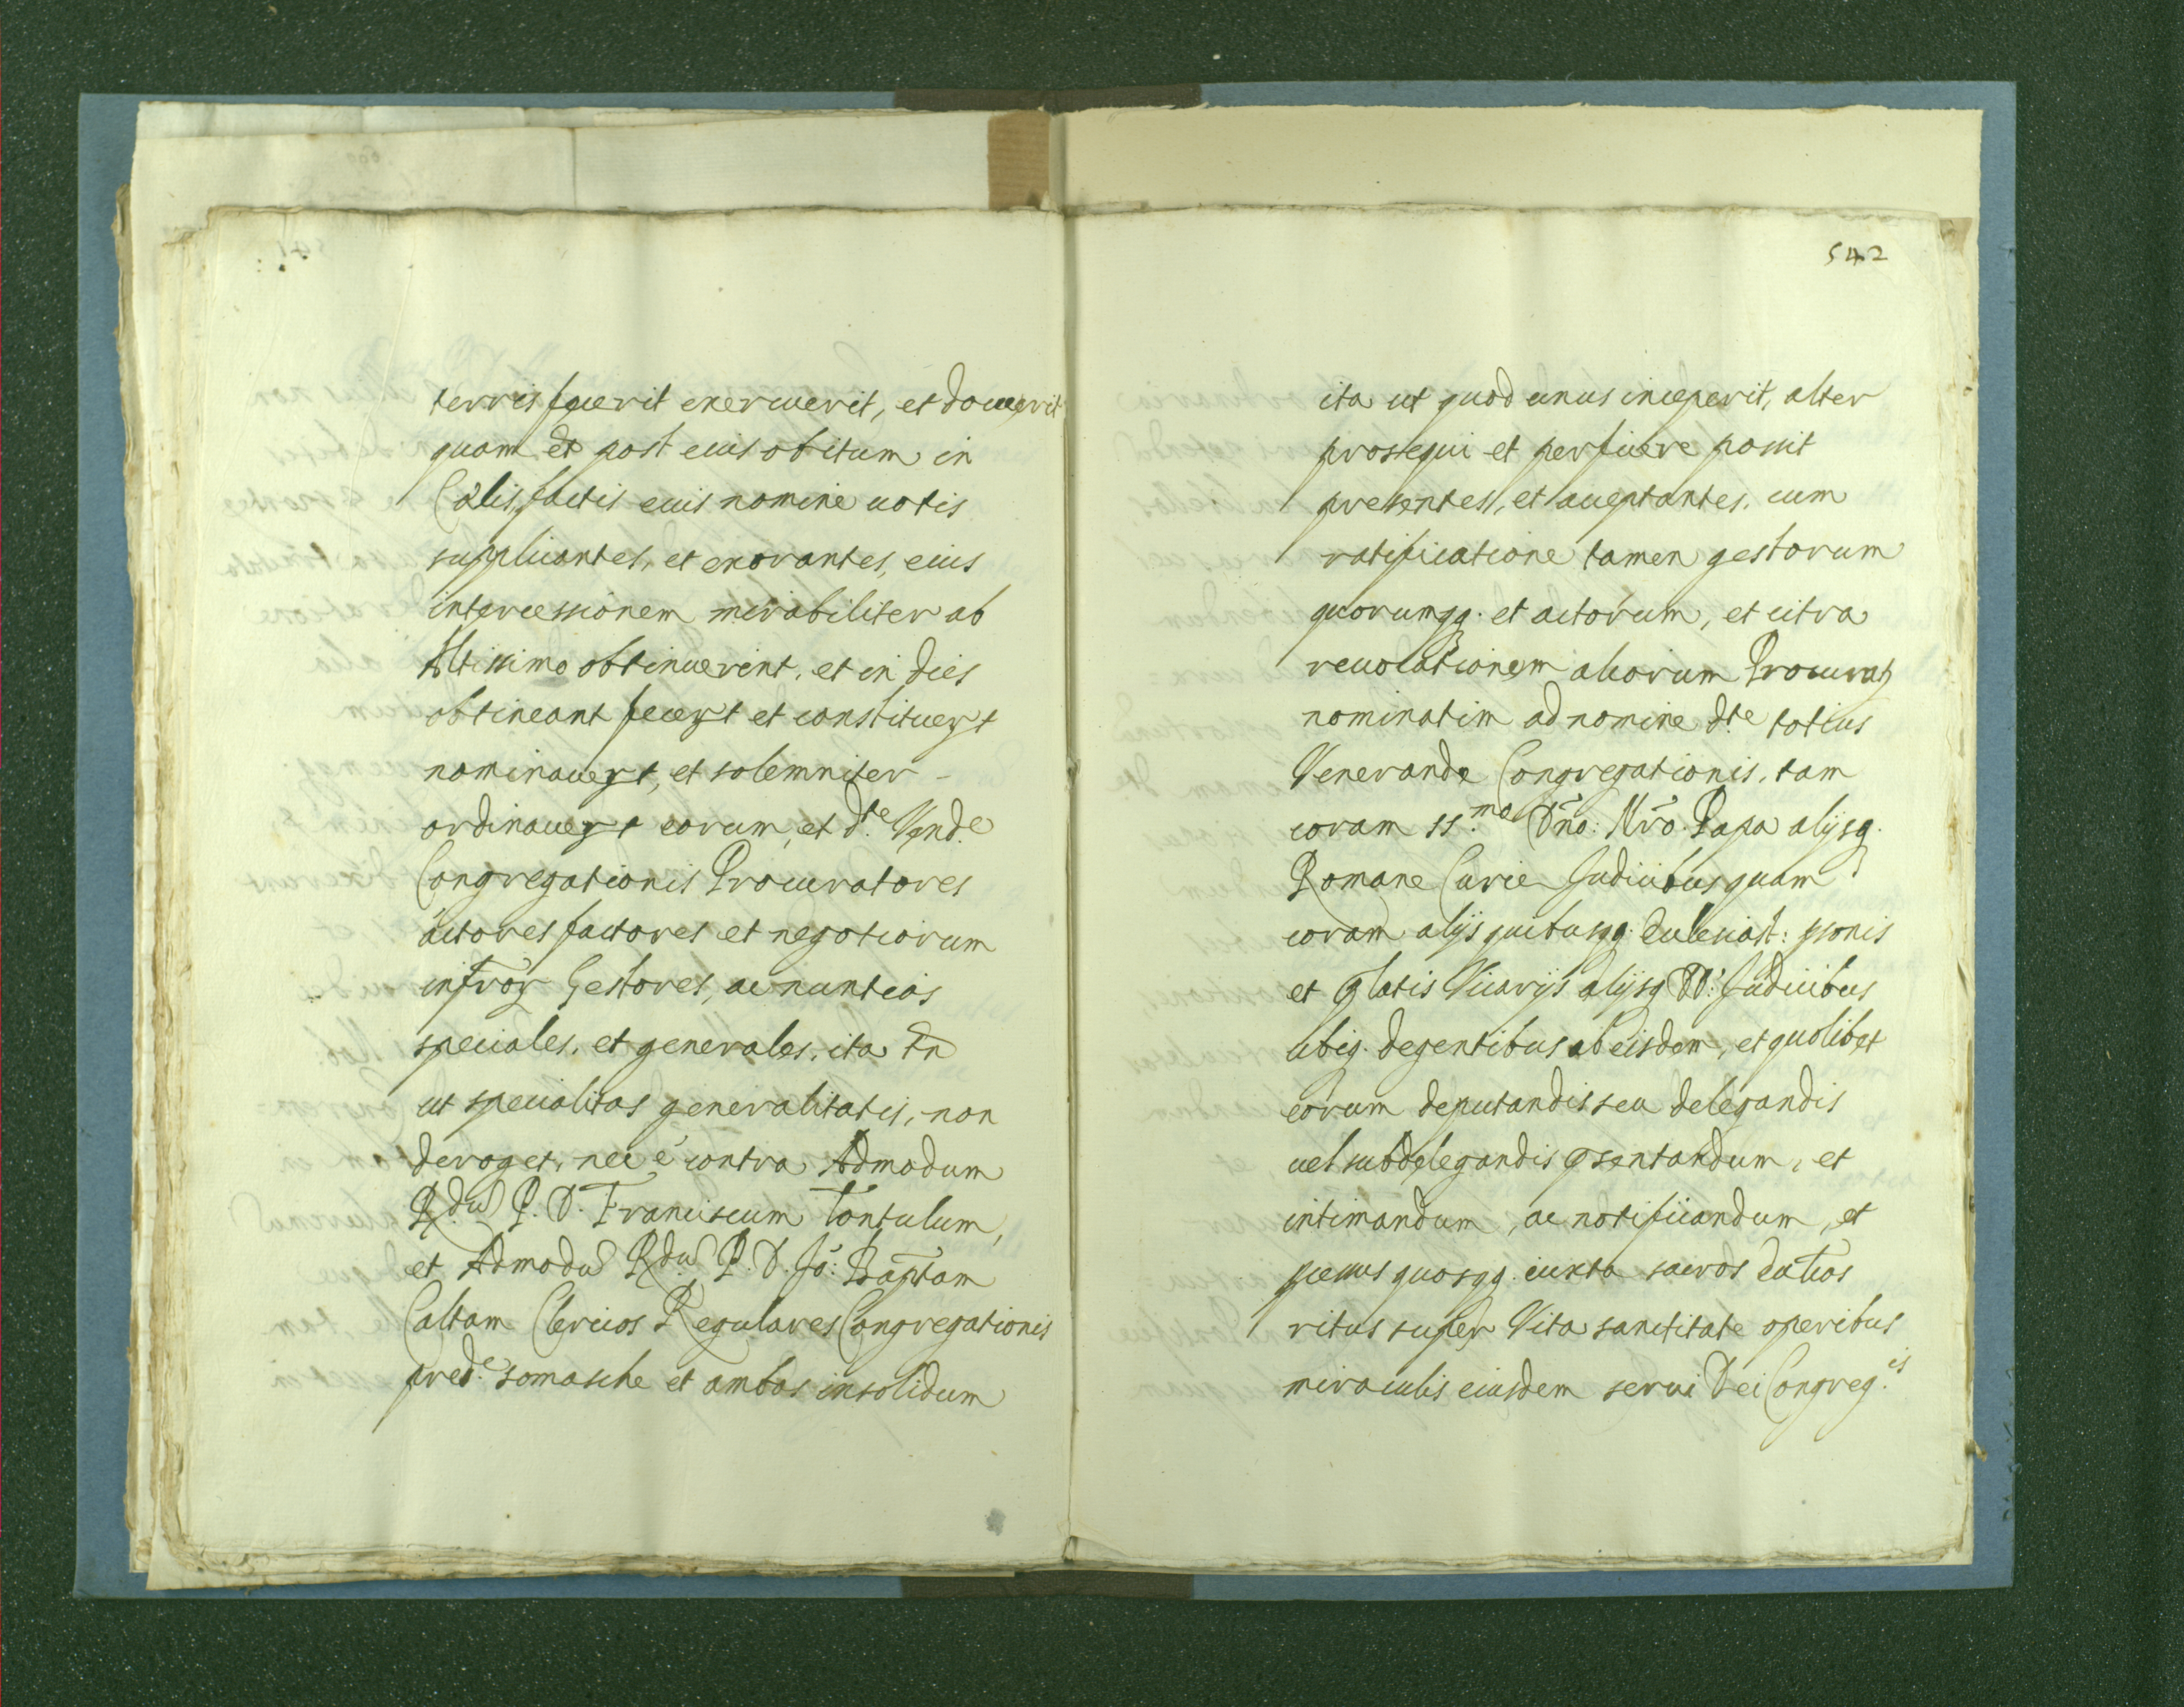 terris fuerit exercuerit, et docuerit
quam et post eius obitum in
Cælis, factis eius nomine uotis
supplicantes, et exorantes, eius
intercessionem mirabiliter ab
Altissimo obtinuerint, et in dies
obtineant fecert et constituert
nominauert, et solemniter -
ordinauert eorum, et d.te Vend.e
Congregationis Procuratores
actores factores et negotiorum
infror Gestores, ac nuntios
speciales, et generales, ita tn
ut specialitas generalitati, non
deroget, nec è contra Admodum
R.du P. D. Franciscum Tontulum,
et Admodu R.du P. D. Jo: Baptam
Caltam Clericos Regulares Congregationis
pred.e Somasche et ambos insolidum
542
ita ut quod unus inceperit, alter
prosequi et perficere possit
presentes, et acceptantes, cum
ratificatione tamen gestorum
quorumqq. et actorum, et citra
reuocationem aliorum Procurat
nominatim ad nomine d.te totius
Venerande Congregationis, tam
coram SS.mo Dño: Nr̃o. Papa alijsq.
Romane Curie Judicibus quam
coram alijs quibusqq. Ecclesiast: psonis
et platis Vicarijs alijsq DD: Judicibus
ubiq. degentibus ab eisdem, et quolibet
eorum deputandis seu delegandis
uel subdelegandis psentandum, et
intimandum, ac notificandum, et
quosqq. iuxta sacros
ritus super Vita sanctitate operibus
miraculis eiusdem serui Dei Congreg.is